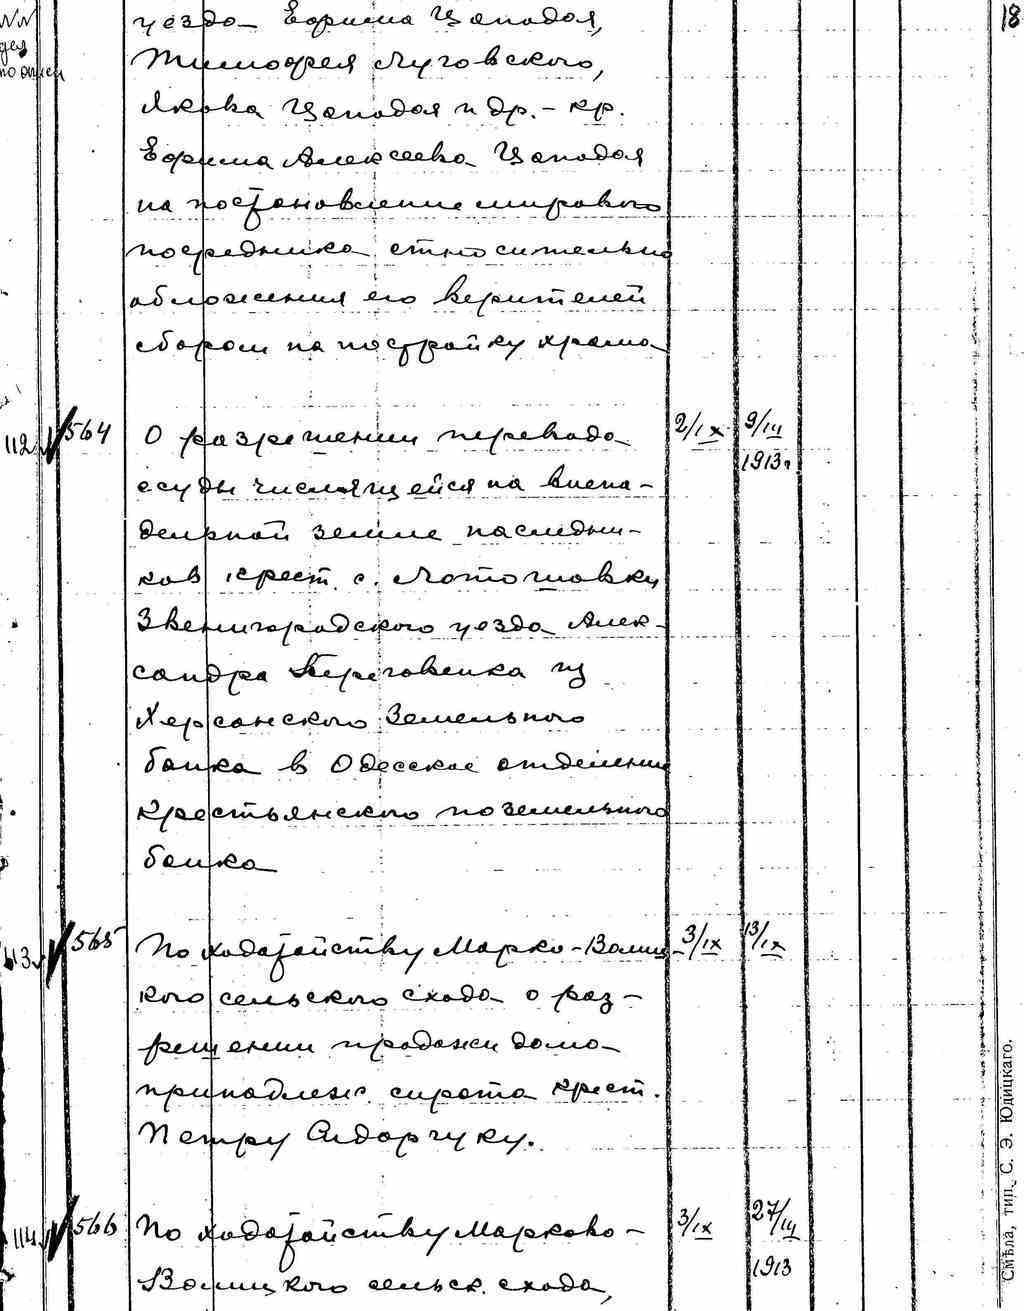 NN
дел
по описи
18
уезда Ефрима Цападоя,
Тимофея Луговского,
Якова Цападоя и др. - кр.
Ефрима Алексеева Цападоя
на постановление мирового
посредника относительно
обложения его верителей
сбором на постройку храма
112 564 О разрешении перевода 2/IX 9/III
1913г
ссуды числящейся на внена-
дельной земле наследни-
ков крест. с.
Звенигородского уезда Алек-
сандра из
Херсонского Земельного
банка в Одесское отделение
Крестьянского поземельного
банка
113 565 По ходатайству Марко-Волиц- 3/IX 13/IX
кого сельского схода о раз-
решении продажи дома
принадлеж. сирота крест.
Петру Сидорчуку.
114 566 По ходатайству Марково- 3/IX 27/III
1913
Волицкого сельск. схода,
Смѣла, тип. С. Э. Юдицкаго.